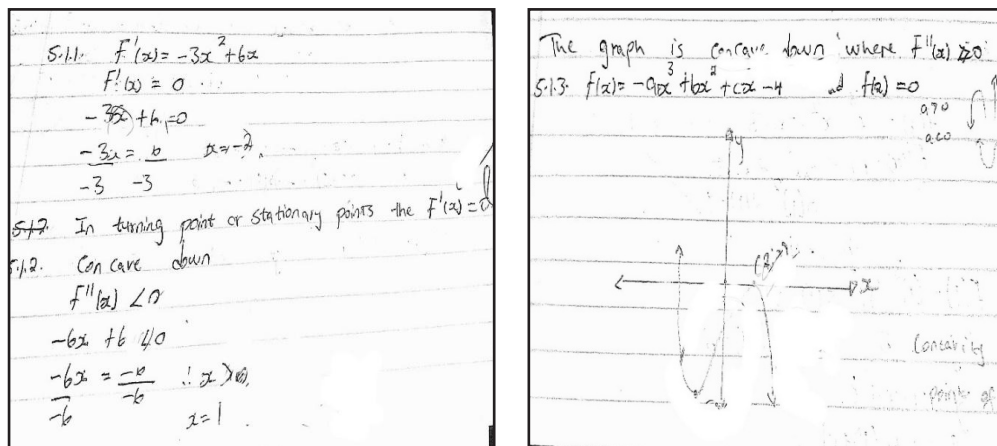 5.1.1. F'(x) = -3x² + 6x
F'(x) = 0
-3x + 6 = 0
-3x = 6 x = -2
-3 -3
5.1.2. In turning point or stationary points the F'(x) = 0
5.1.2. Concave down
F''(x) < 0
-6x + 6 < 0
-6x = -6 ∴ x >
-6 -6
x = 1
The graph is concave down where F''(x) 0
5.1.3. f(x) = -ax³ + bx² + cx - 4 f(2) = 0
a>0
a<0
y
x
Concavity
point of